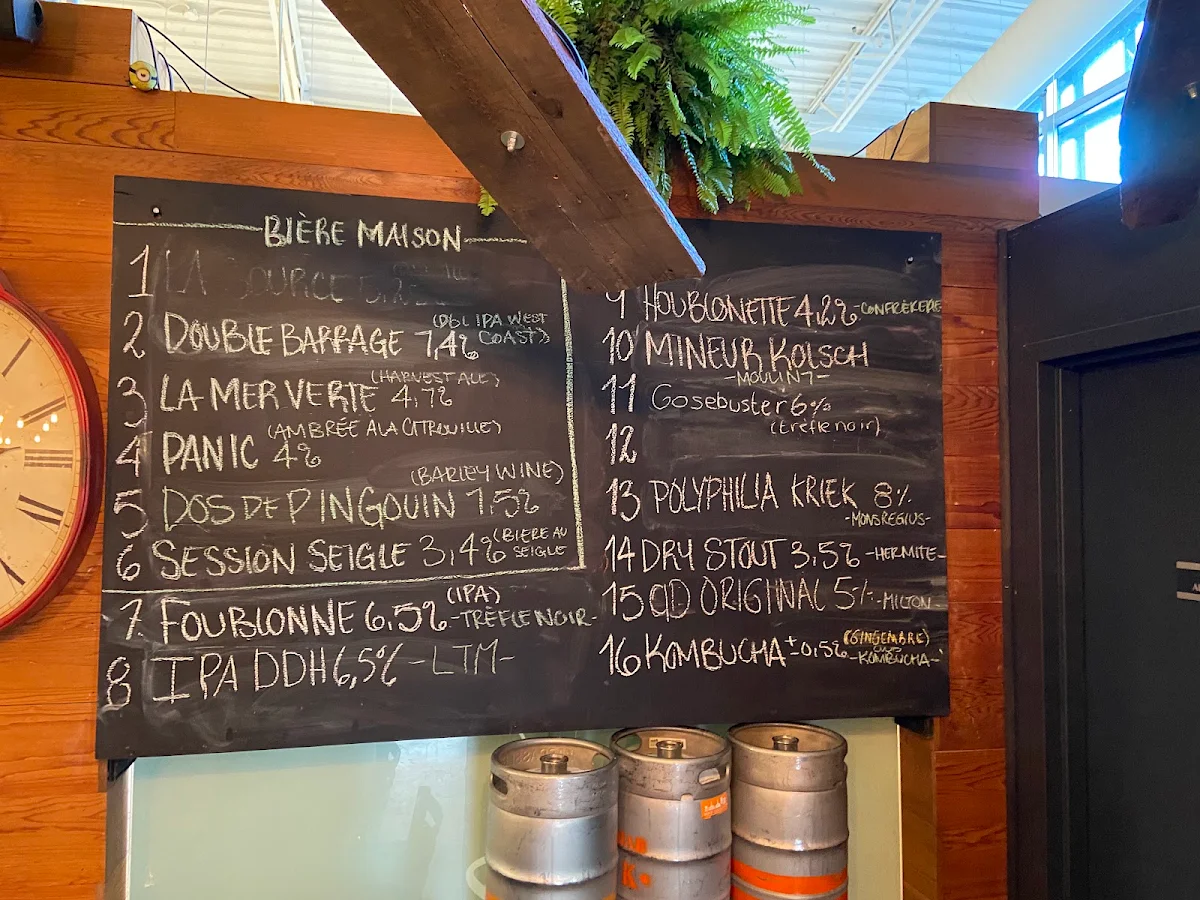 BIÈRE MAISON
1 LA SOURCE
2 DOUBLE BARRAGE 7,4% (DBL IPA WEST COAST)
3 LA MER VERTE 4,7% (HARVEST ALE)
4 PANIC 4% (AMBRÉE A LA CITROUILLE)
5 DOS DE PINGOUIN 7,5% (BARLEY WINE)
6 SESSION SEIGLE 3,4% (BIERE AU SEIGLE
7 FOUBLONNE 6,5% (IPA) -TRÈFLE NOIR-
8 IPA DDH 6,5% -LTM-
9 HOUBLONETTE 4,2% -CONFRÈRERIE
10 MINEUR KOLSCH
-MOULIN 7-
11 Gosebuster 6%
(trèfle noir)
12
13 POLYPHILIA KRIEK 8%
-MONSREGIUS-
14 DRY STOUT 3,5% -HERMITE-
15 CID ORIGINAL 5% -MILTON-
16 KOMBUCHA ±0,5% (GINGEMBRE)
-KOMBUCHA-